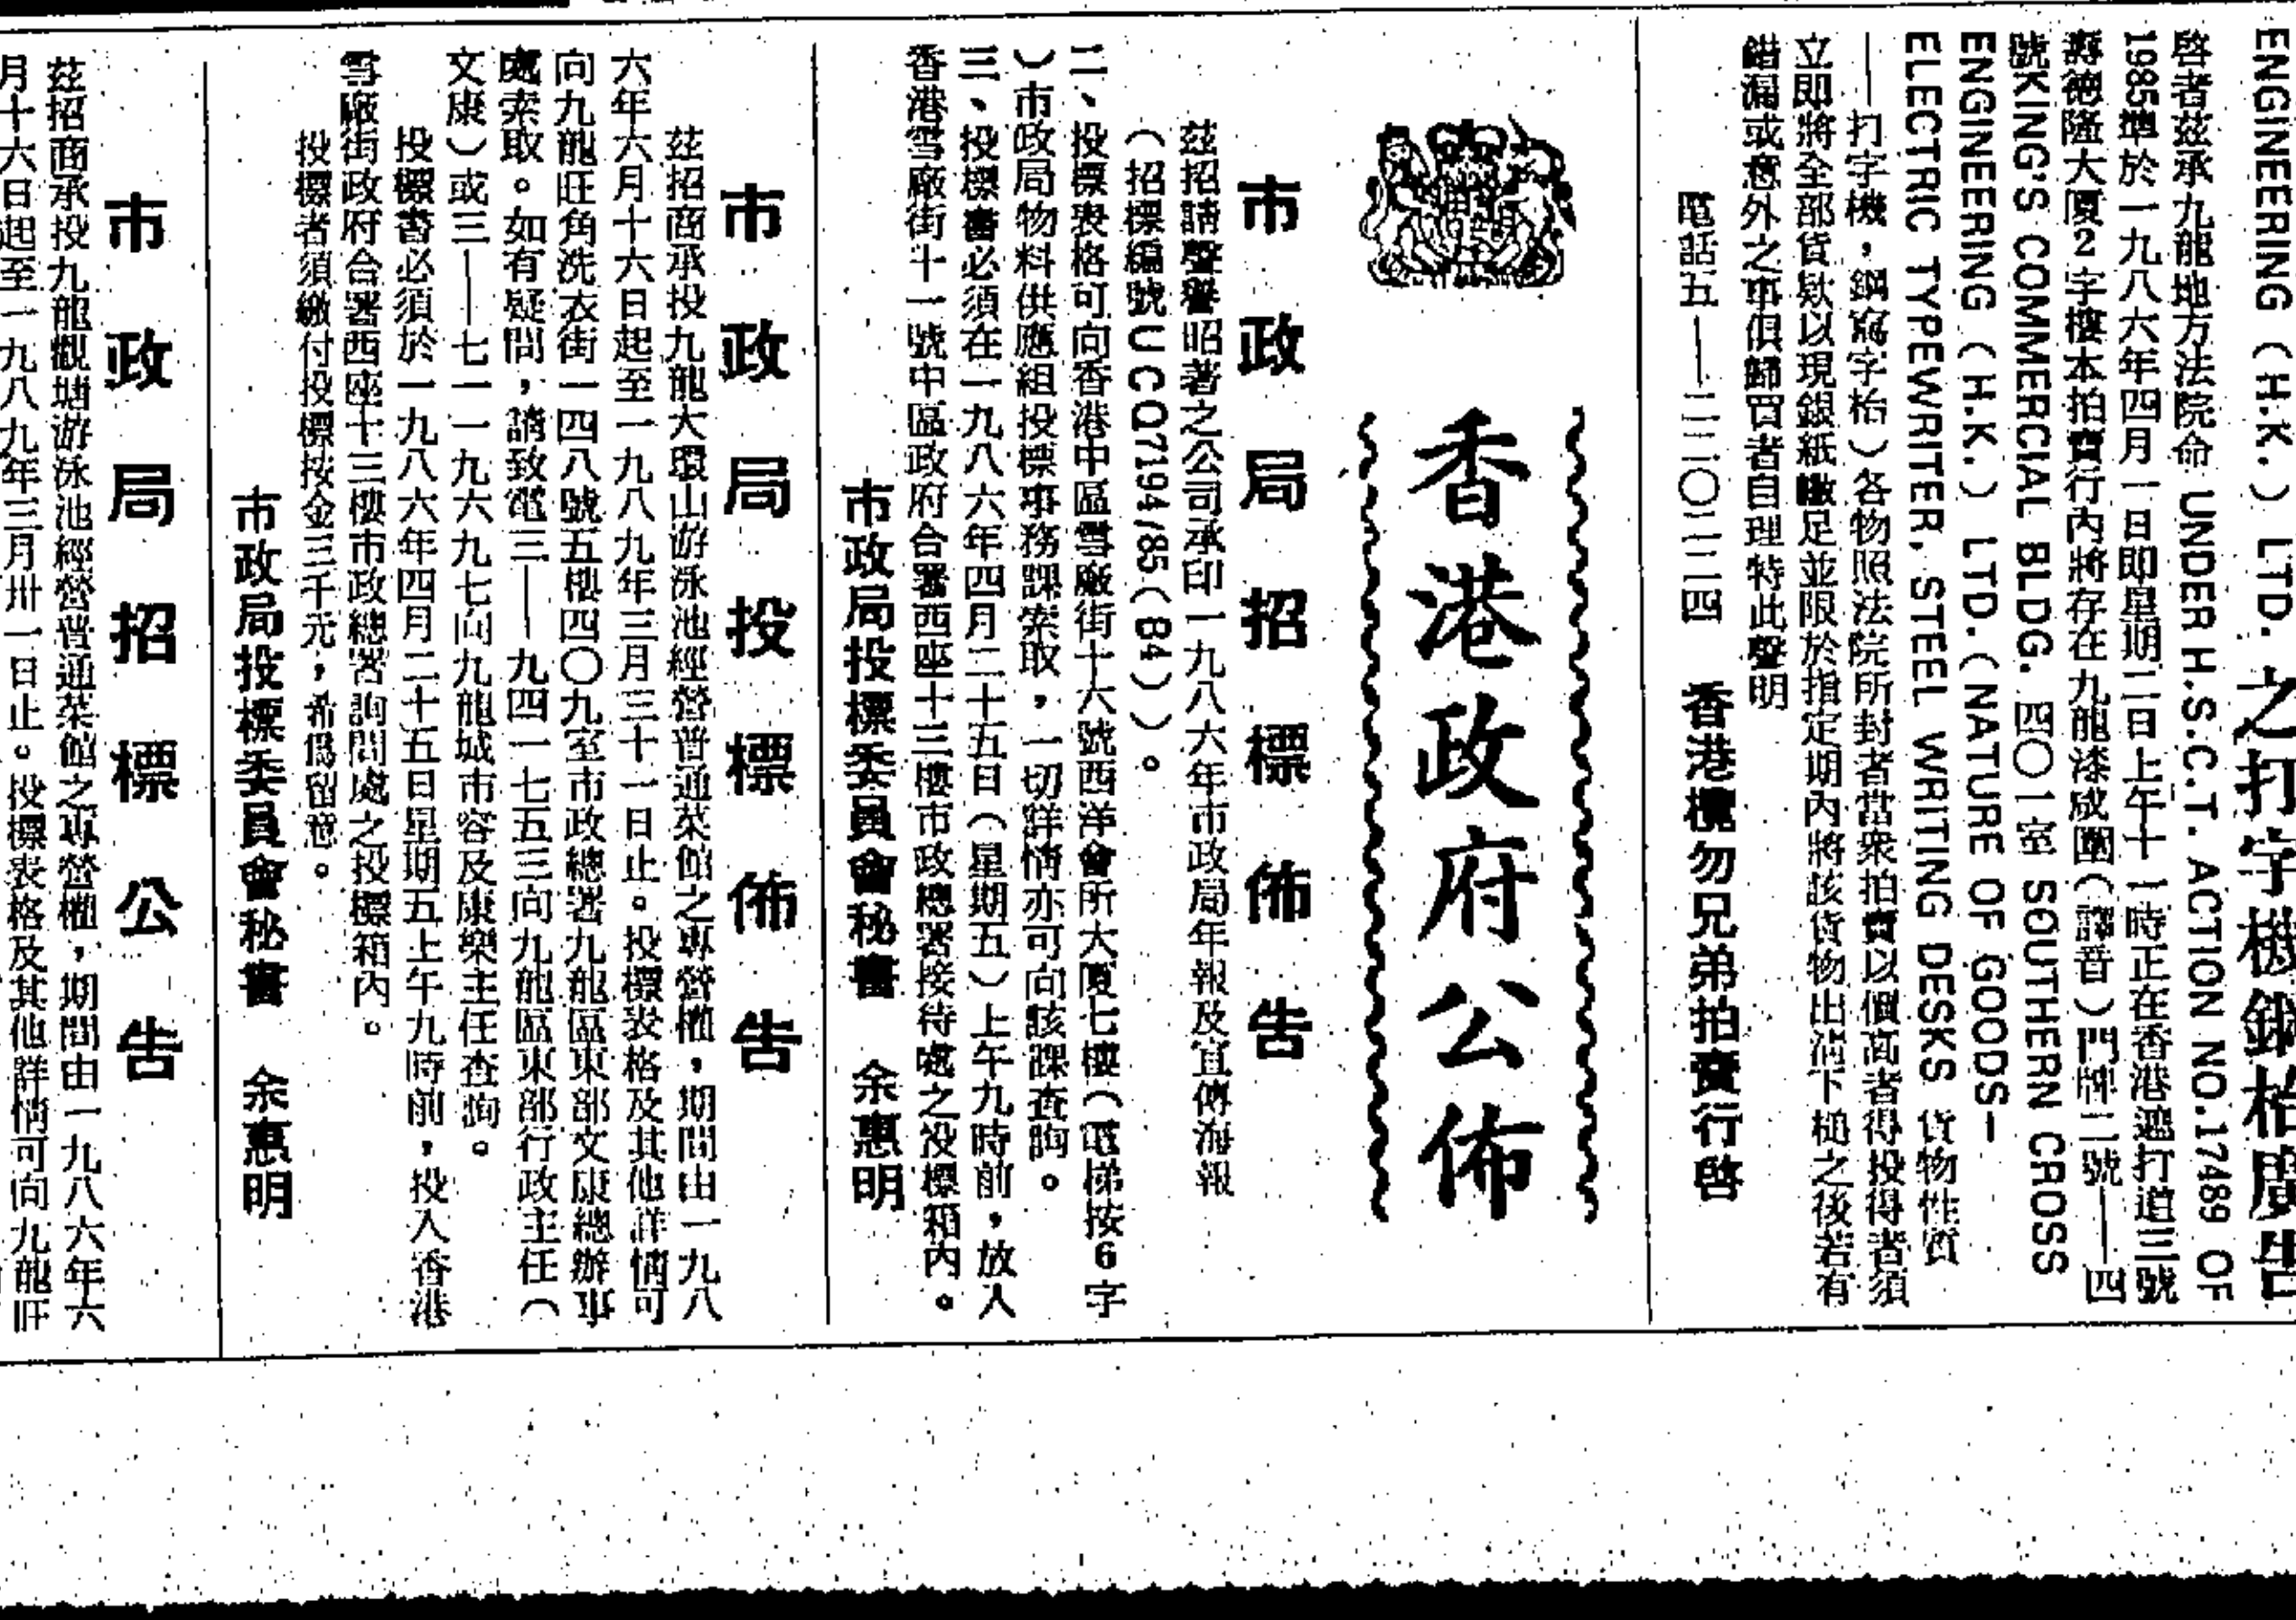 ENGINEERING (H.K.) LTD. 之打字機鋼枱廣告
啓者茲承九龍地方法院命 UNDER H.S.C.T. ACTION NO.17489 OF
1985準於一九八六年四月一日即星期二日上午十一時正在香港遮打道三號
壽德隆大厦2字樓本拍賣行內將存在九龍漆咸圍(譯音)門牌二號——四
號KING'S COMMERCIAL BLDG. 四〇一室 SOUTHERN CROSS
ENGINEERING (H.K.) LTD. (NATURE OF GOODS—
ELECTRIC TYPEWRITER, STEEL WRITING DESKS 貨物性質
——打字機，鋼寫字枱)各物照法院所封者當衆拍賣以價高者得投得者須
立即將全部貨欵以現銀紙繳足並限於指定期內將該貨物出淸下槌之後若有
錯漏或意外之事俱歸買者自理特此聲明
電話五——二二〇三二四 香港欖勿兄弟拍賣行啓
香港政府公佈
市政局招標佈告
茲招請聲譽昭著之公司承印一九八六年市政局年報及宣傳海報
(招標編號UCQ7194/85(84))。
二、投標表格可向香港中區雪廠街十六號西洋會所大厦七樓(電梯按6字
)市政局物料供應組投標事務課索取，一切詳情亦可向該課查詢。
三、投標書必須在一九八六年四月二十五日(星期五)上午九時前，放入
香港雪廠街十一號中區政府合署西座十三樓市政總署接待處之投標箱內。
市政局投標委員會秘書 余惠明
市政局投標佈告
茲招商承投九龍大環山游泳池經營普通菜館之專營權，期間由一九八
六年六月十六日起至一九八九年三月三十一日止。投標表格及其他詳情可
向九龍旺角洗衣街一四八號五樓四〇九室市政總署九龍區東部文康總辦事
處索取。如有疑問，請致電三——九四一七五三向九龍區東部行政主任(
文康)或三——七一一九六九七向九龍城市容及康樂主任查詢。
投標書必須於一九八六年四月二十五日星期五上午九時前，投入香港
雪廠街政府合署西座十三樓市政總署詢問處之投標箱內。
投標者須繳付投標按金三千元，希爲留意。
市政局投標委員會秘書 余惠明
市政局招標公告
茲招商承投九龍觀塘游泳池經營普通菜館之專營權，期間由一九八六年六
月十六日起至一九八九年三月卅一日止。投標表格及其他詳情可向九龍旺